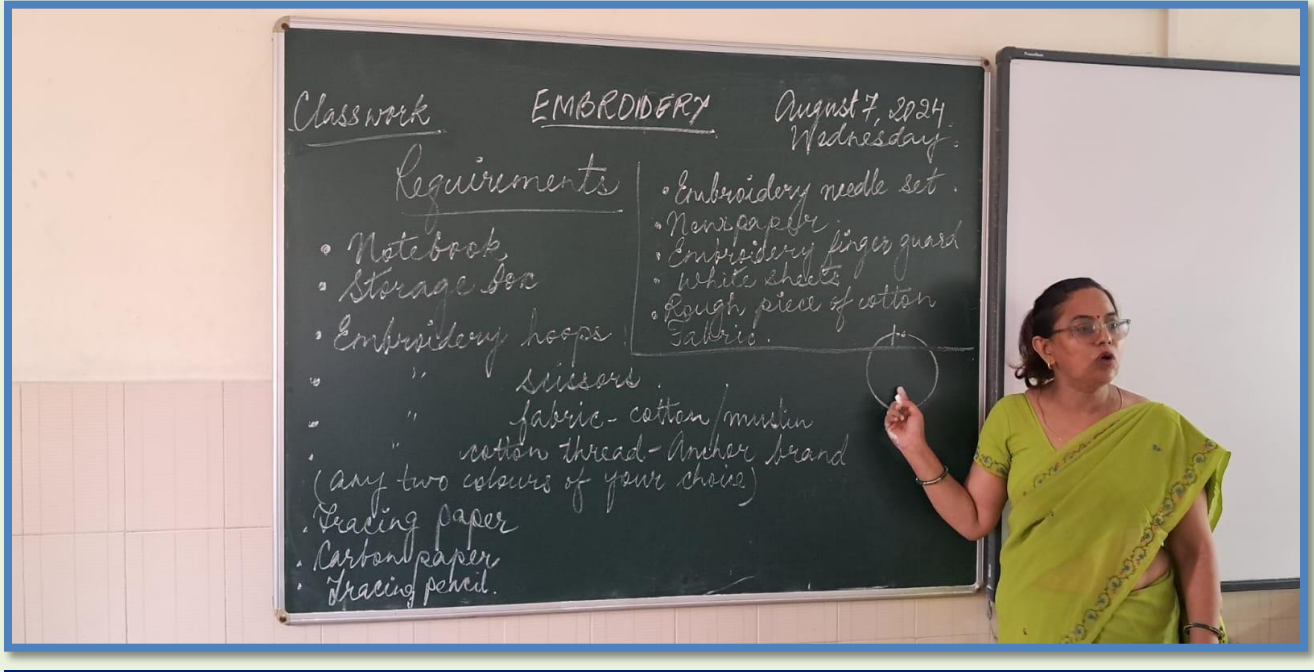 Classwork
EMBROIDERY
August 7, 2024
Wednesday.
Requirements
• Notebook
• Storage box
• Embroidery hoops
• " scissors.
• " fabric - cotton/muslin
• " cotton thread - Anchor brand
(any two colours of your choice)
• Tracing paper
• Carbon paper
• Tracing pencil.
• Embroidery needle set.
• Newspaper.
• Embroidery finger guard
• White sheets
• Rough piece of cotton
Fabric.